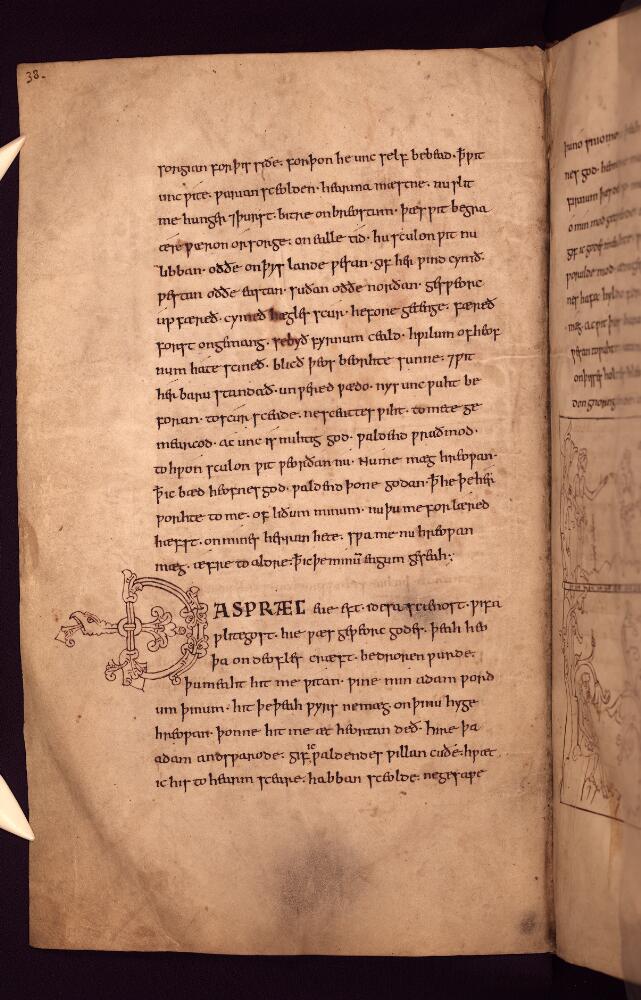 38.
sorgian for his siðe. forþon he unc self bebead. ꝥ wit
unc wite. warian sceolden. hearma mæstne. nu slit
me hunger ⁊ þurst. bitre on breostum. þæs wit begra
ær wæron orsorge. on ealle tid. hu sculon wit nu
libban. oððe on þys lande wesan. gif her wind cymð.
westan oððe eastan. suðan oððe norðan. gesweorc
up færeð. cymeð hægles scur. hefone getenge. færeð
forst on gemang. se byð fyrnum ceald. hwilum of heof
num hate scineð. blicð þeos beorhte sunne. ⁊ wit
her baru standað. unwered wædo. nys unc wuht be
foran. to scur sceade. ne sceattes wiht. to mete ge
mearcod. ac unc is mihtig god. waldend wraðmod.
to hwon sculon wit weorðan nu. Nu me mæg hreowan.
ꝥ ic bæd heofnes god. waldend þone godan. ꝥ he þe her
worhte to me. of liðum minum. nu þu me forlæred
hæfst. on mines herran hete. swa me nu hreowan
mæg. æfre to aldre. ꝥ ic þe minū eagum geseah;
ÐA SPRÆC eue eft. idesa scienost. wifa
wlitegost. hie wæs geweorc godes. þeah heo
þa on deofles cræft. bedroren wurde.
þu meaht hit me witan. wine min adam word
um þinum. hit þe þeah wyrs ne mæg. on þinum hyge
hreowan. þonne hit me æt heortan deð. hire þa
adam andswarode. gif ic waldendes willan cuðe. hwæt
ic his to hearm sceare. habban sceolde. ne gesawe